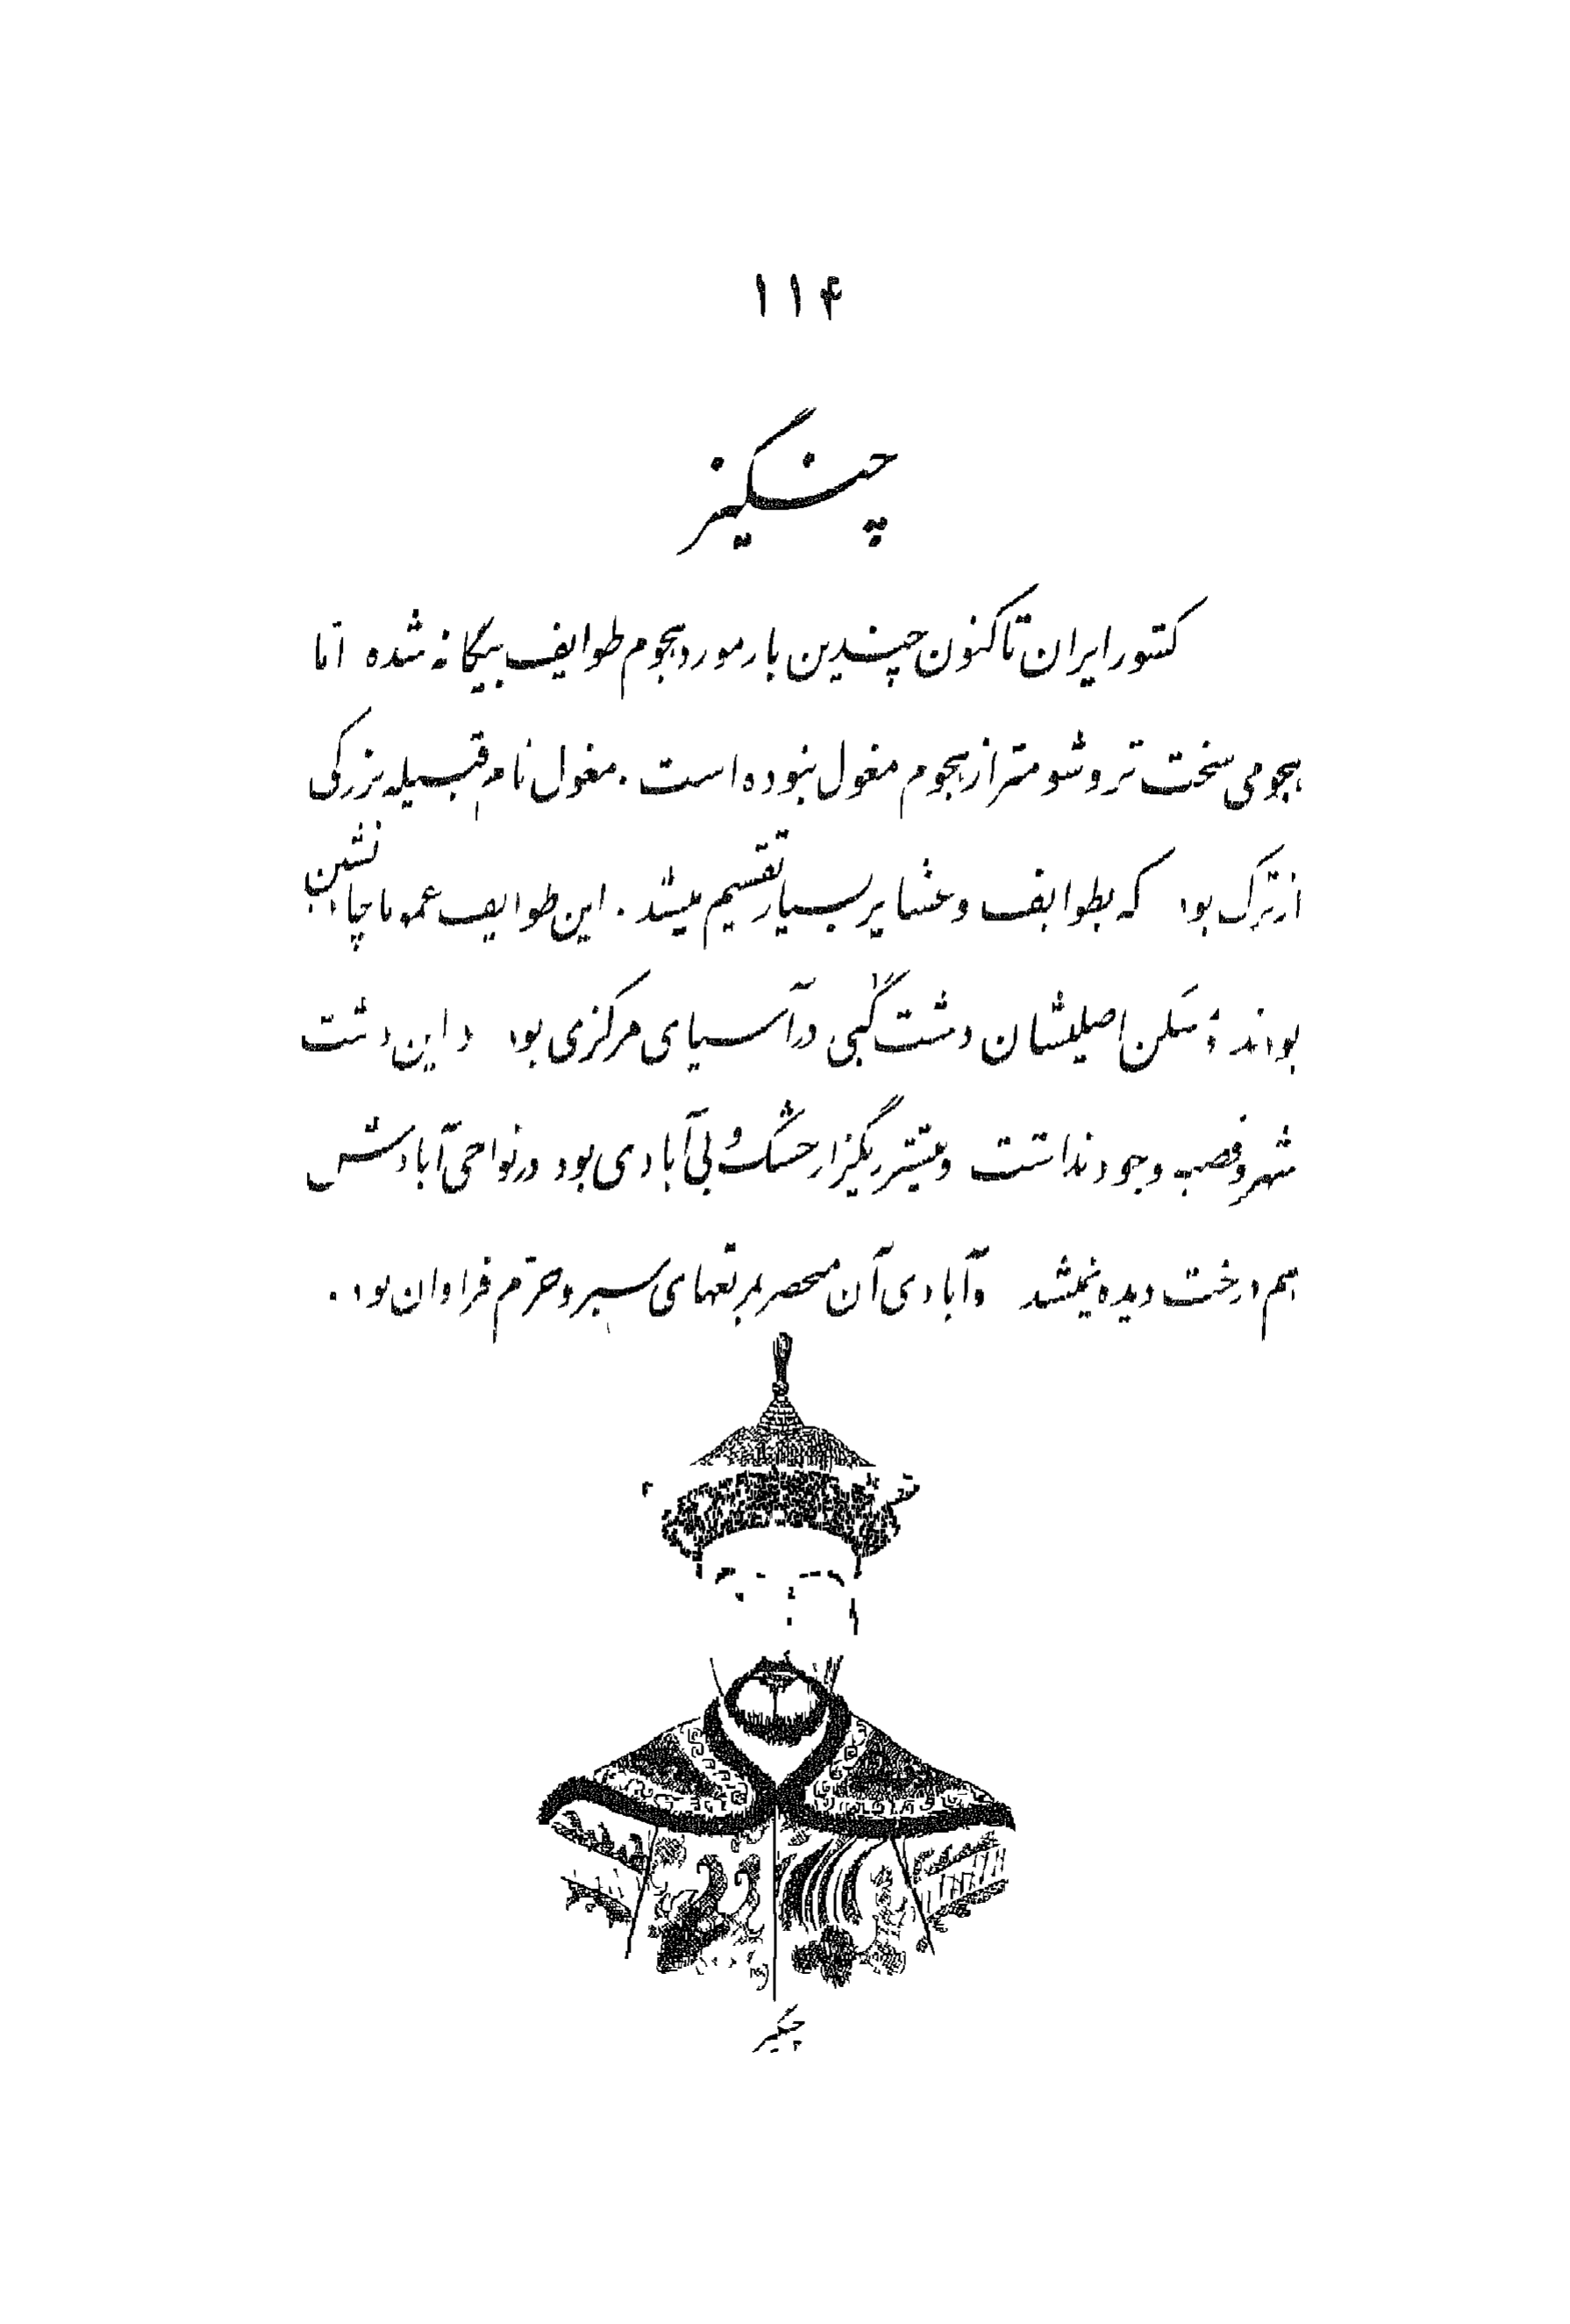 ۱۱۴
چنگیز
کشور ایران تاکنون چندین بار مورد هجوم طوایف بیگانه شده اما
هجومی سخت تر و شومتر از هجوم مغول نبوده است . مغول نام قبیله بزرگی
از ترک بود که بطوایف و عشایر بسیار تقسیم میشد . این طوایف عموماً چادرنشین
بودند و مسکن اصلیشان دشت گبی در آسیای مرکزی بود در این دشت
شهر و قصبه وجود نداشت و بیشتر ریگزار خشک و بی آبادی بود در نواحی آبادش
هم درخت دیده نمیشد و آبادی آن منحصر بمرتعهای سبز و خرم فراوان بود .
چنگیز